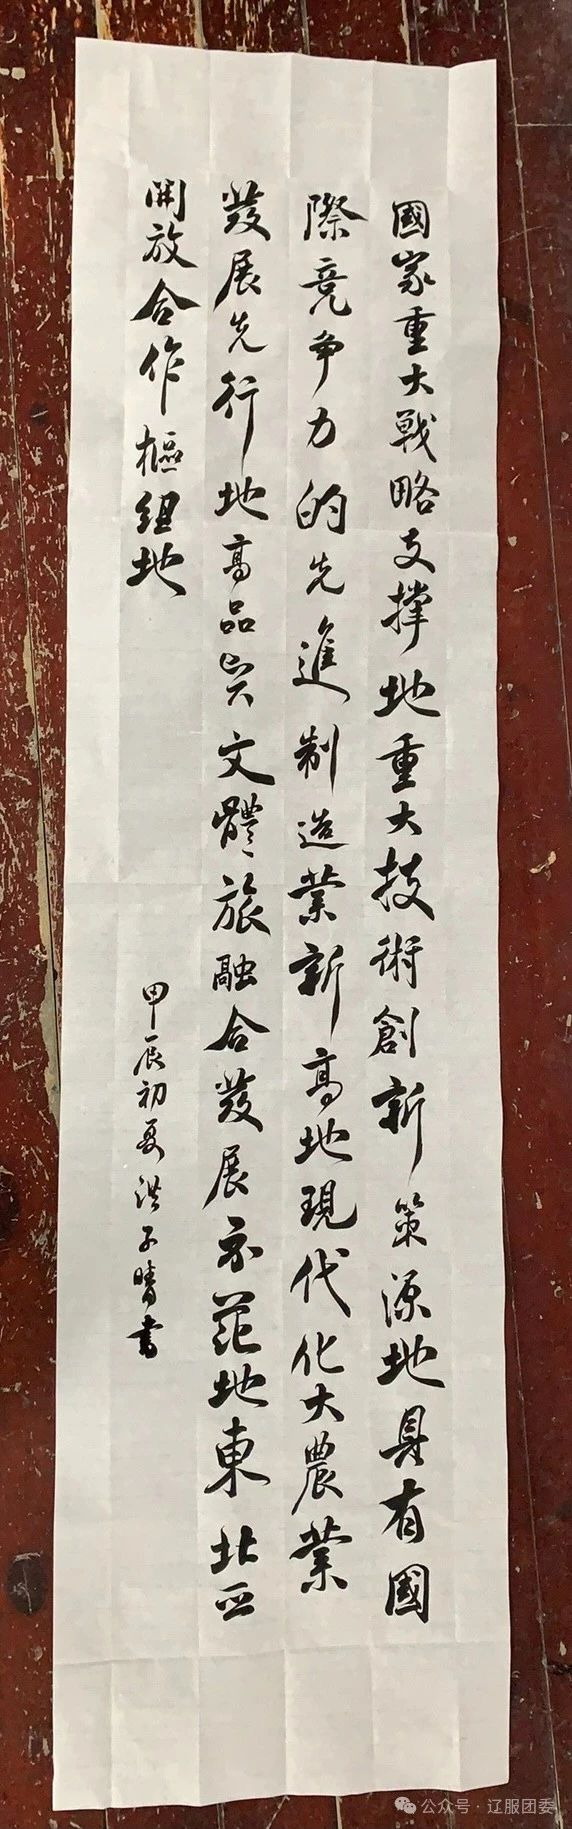 國家重大戰略支撐地重大技術創新策源地具有國
際競争力的先進制造業新高地現代化大農業
發展先行地高品質文體旅融合發展示范地東北亞
開放合作樞紐地
甲辰初夏洪子晴書
公众号·辽服团委